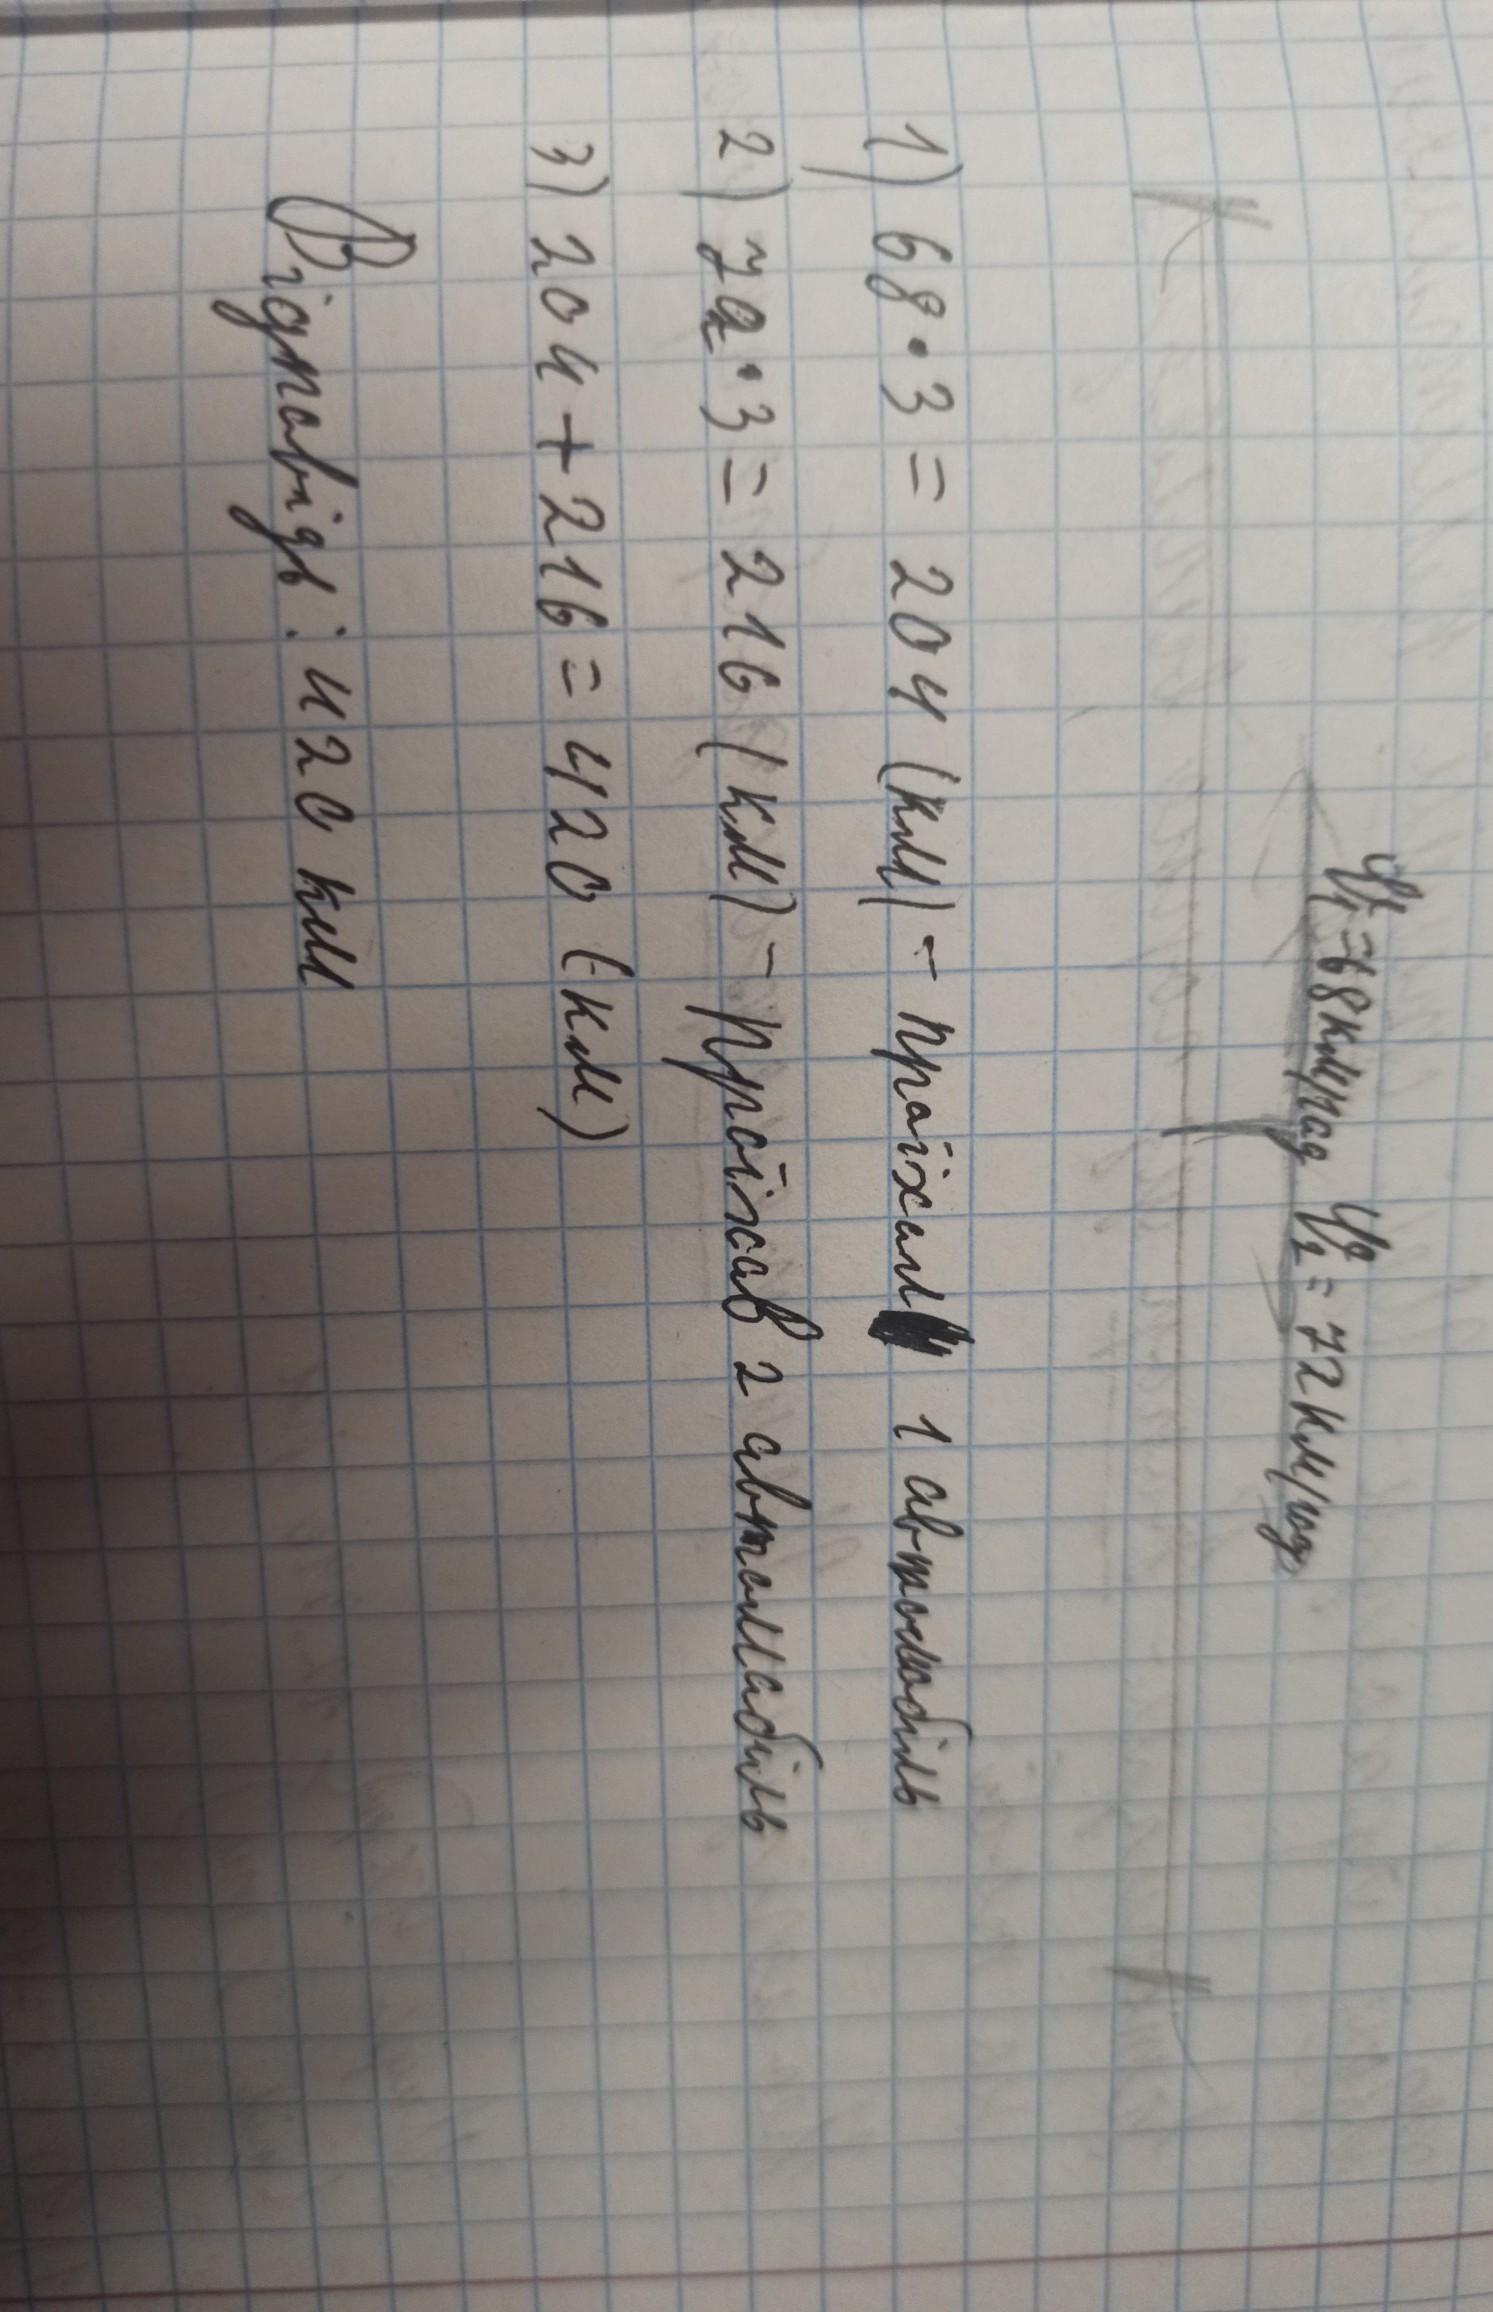 V₁=68км/год V₂=72км/год
1) 68·3=204 (км) - проїхал 1 автомобіль
2) 72·3=216 (км) - проїхав 2 автомобіль
3) 204+216=420 (км)
Відповідь: 420 км